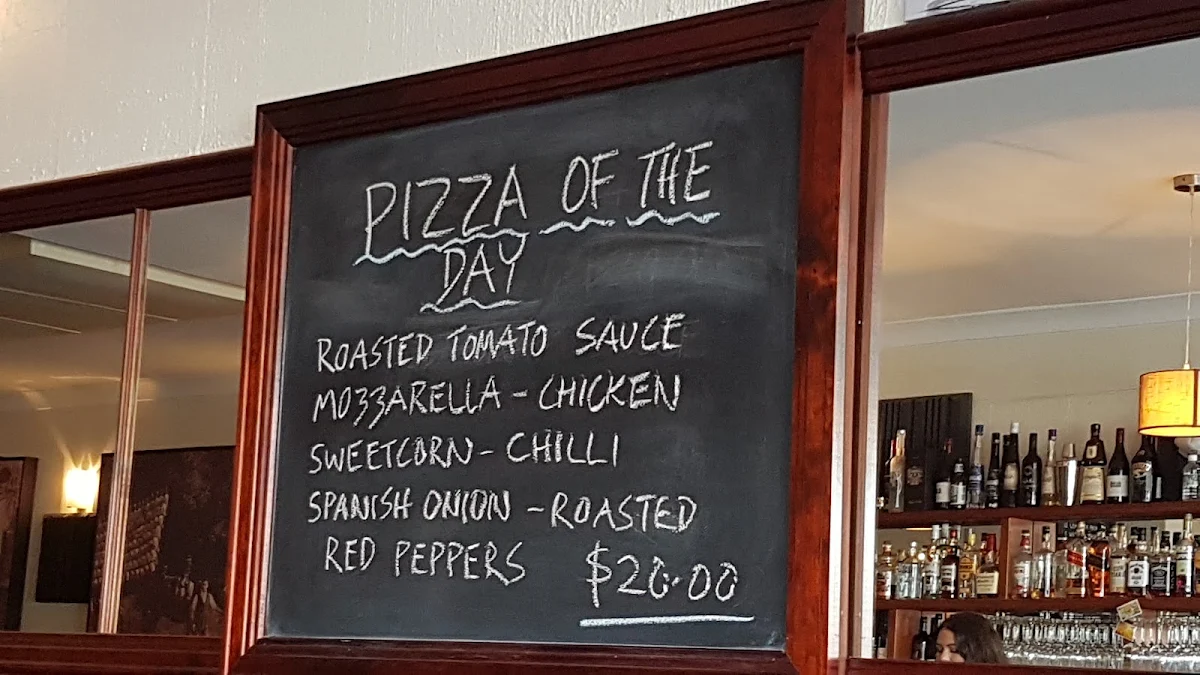 PIZZA OF THE
DAY
ROASTED TOMATO SAUCE
MOZZARELLA - CHICKEN
SWEETCORN - CHILLI
SPANISH ONION - ROASTED
RED PEPPERS $20.00